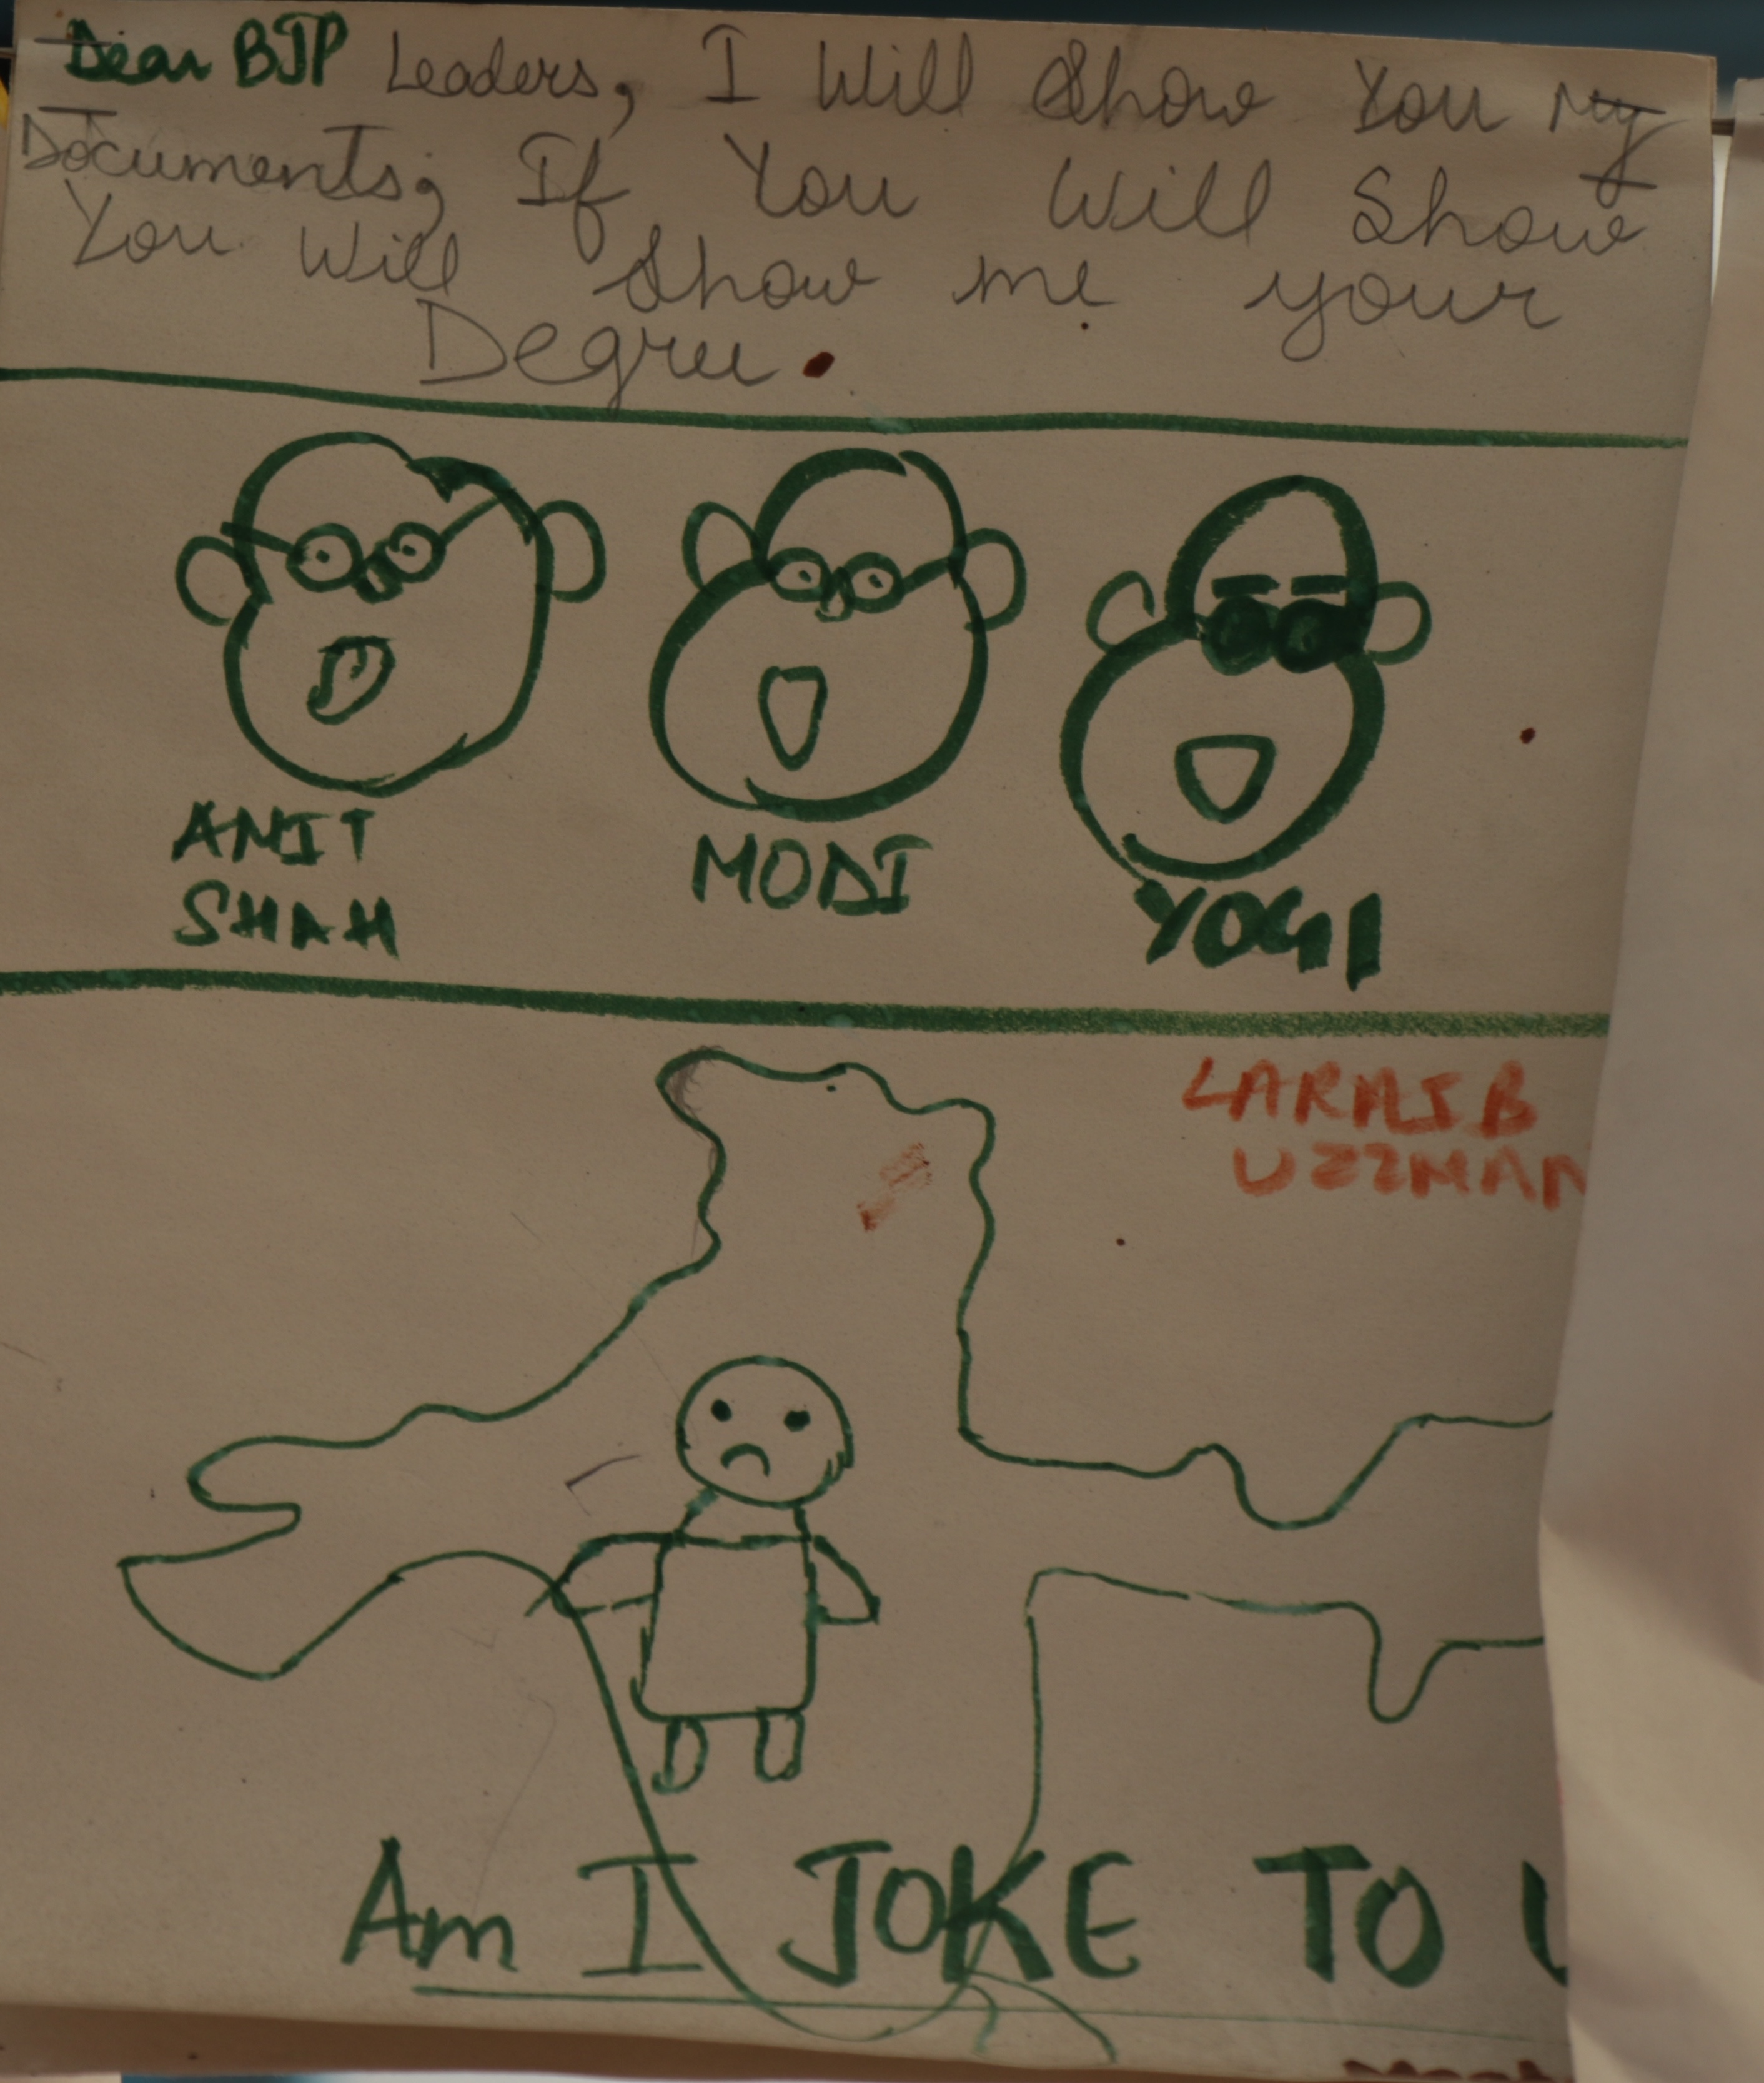 Dear BJP Leaders, I Will Show You My
Documents, If You Will Show
You Will Show me your
Degree.
AMIT
SHAH
MODI
YOGI
LARAIB
UZZMAN
Am I JOKE TO